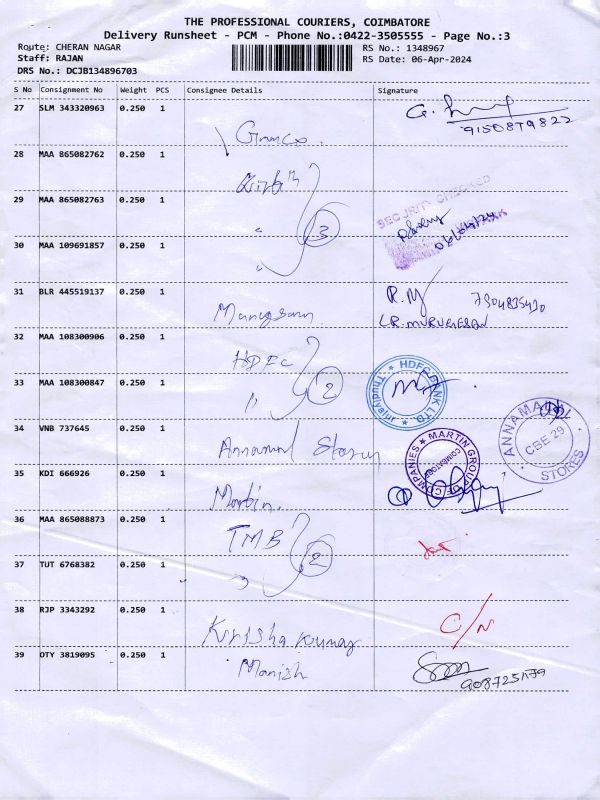 THE PROFESSIONAL COURIERS, COIMBATORE
Delivery Runsheet - PCM - Phone No.:0422-3505555 - Page No.:3
Route: CHERAN NAGAR RS No.: 1348967
Staff: RAJAN RS Date: 06-Apr-2024
DRS No.: DCJB134896703
S No Consignment No Weight PCS Consignee Details Signature
27 SLM 343320963 0.250 1
9150879822
28 MAA 865082762 0.250 1
29 MAA 865082763 0.250 1
SECURITY CHECKED
3
06/04/24
30 MAA 109691857 0.250 1
"
31 BLR 445519137 0.250 1
R.M 7904835430
Murugesan L.R. MURUGESAN
32 MAA 108300906 0.250 1
HDFC
HDFC BANK LTD
Thudiyalur
33 MAA 108300847 0.250 1
" 2
34 VNB 737645 0.250 1
ANNAMALAI STORES
CBE 29
MARTIN GROUP OF COMPANIES
COIMBATORE
35 KDI 666926 0.250 1
Martin.
36 MAA 865088873 0.250 1
TMB
2
37 TUT 6768382 0.250 1
38 RJP 3343292 0.250 1
C/N
Krishakumar
39 OTY 3819095 0.250 1
Manish